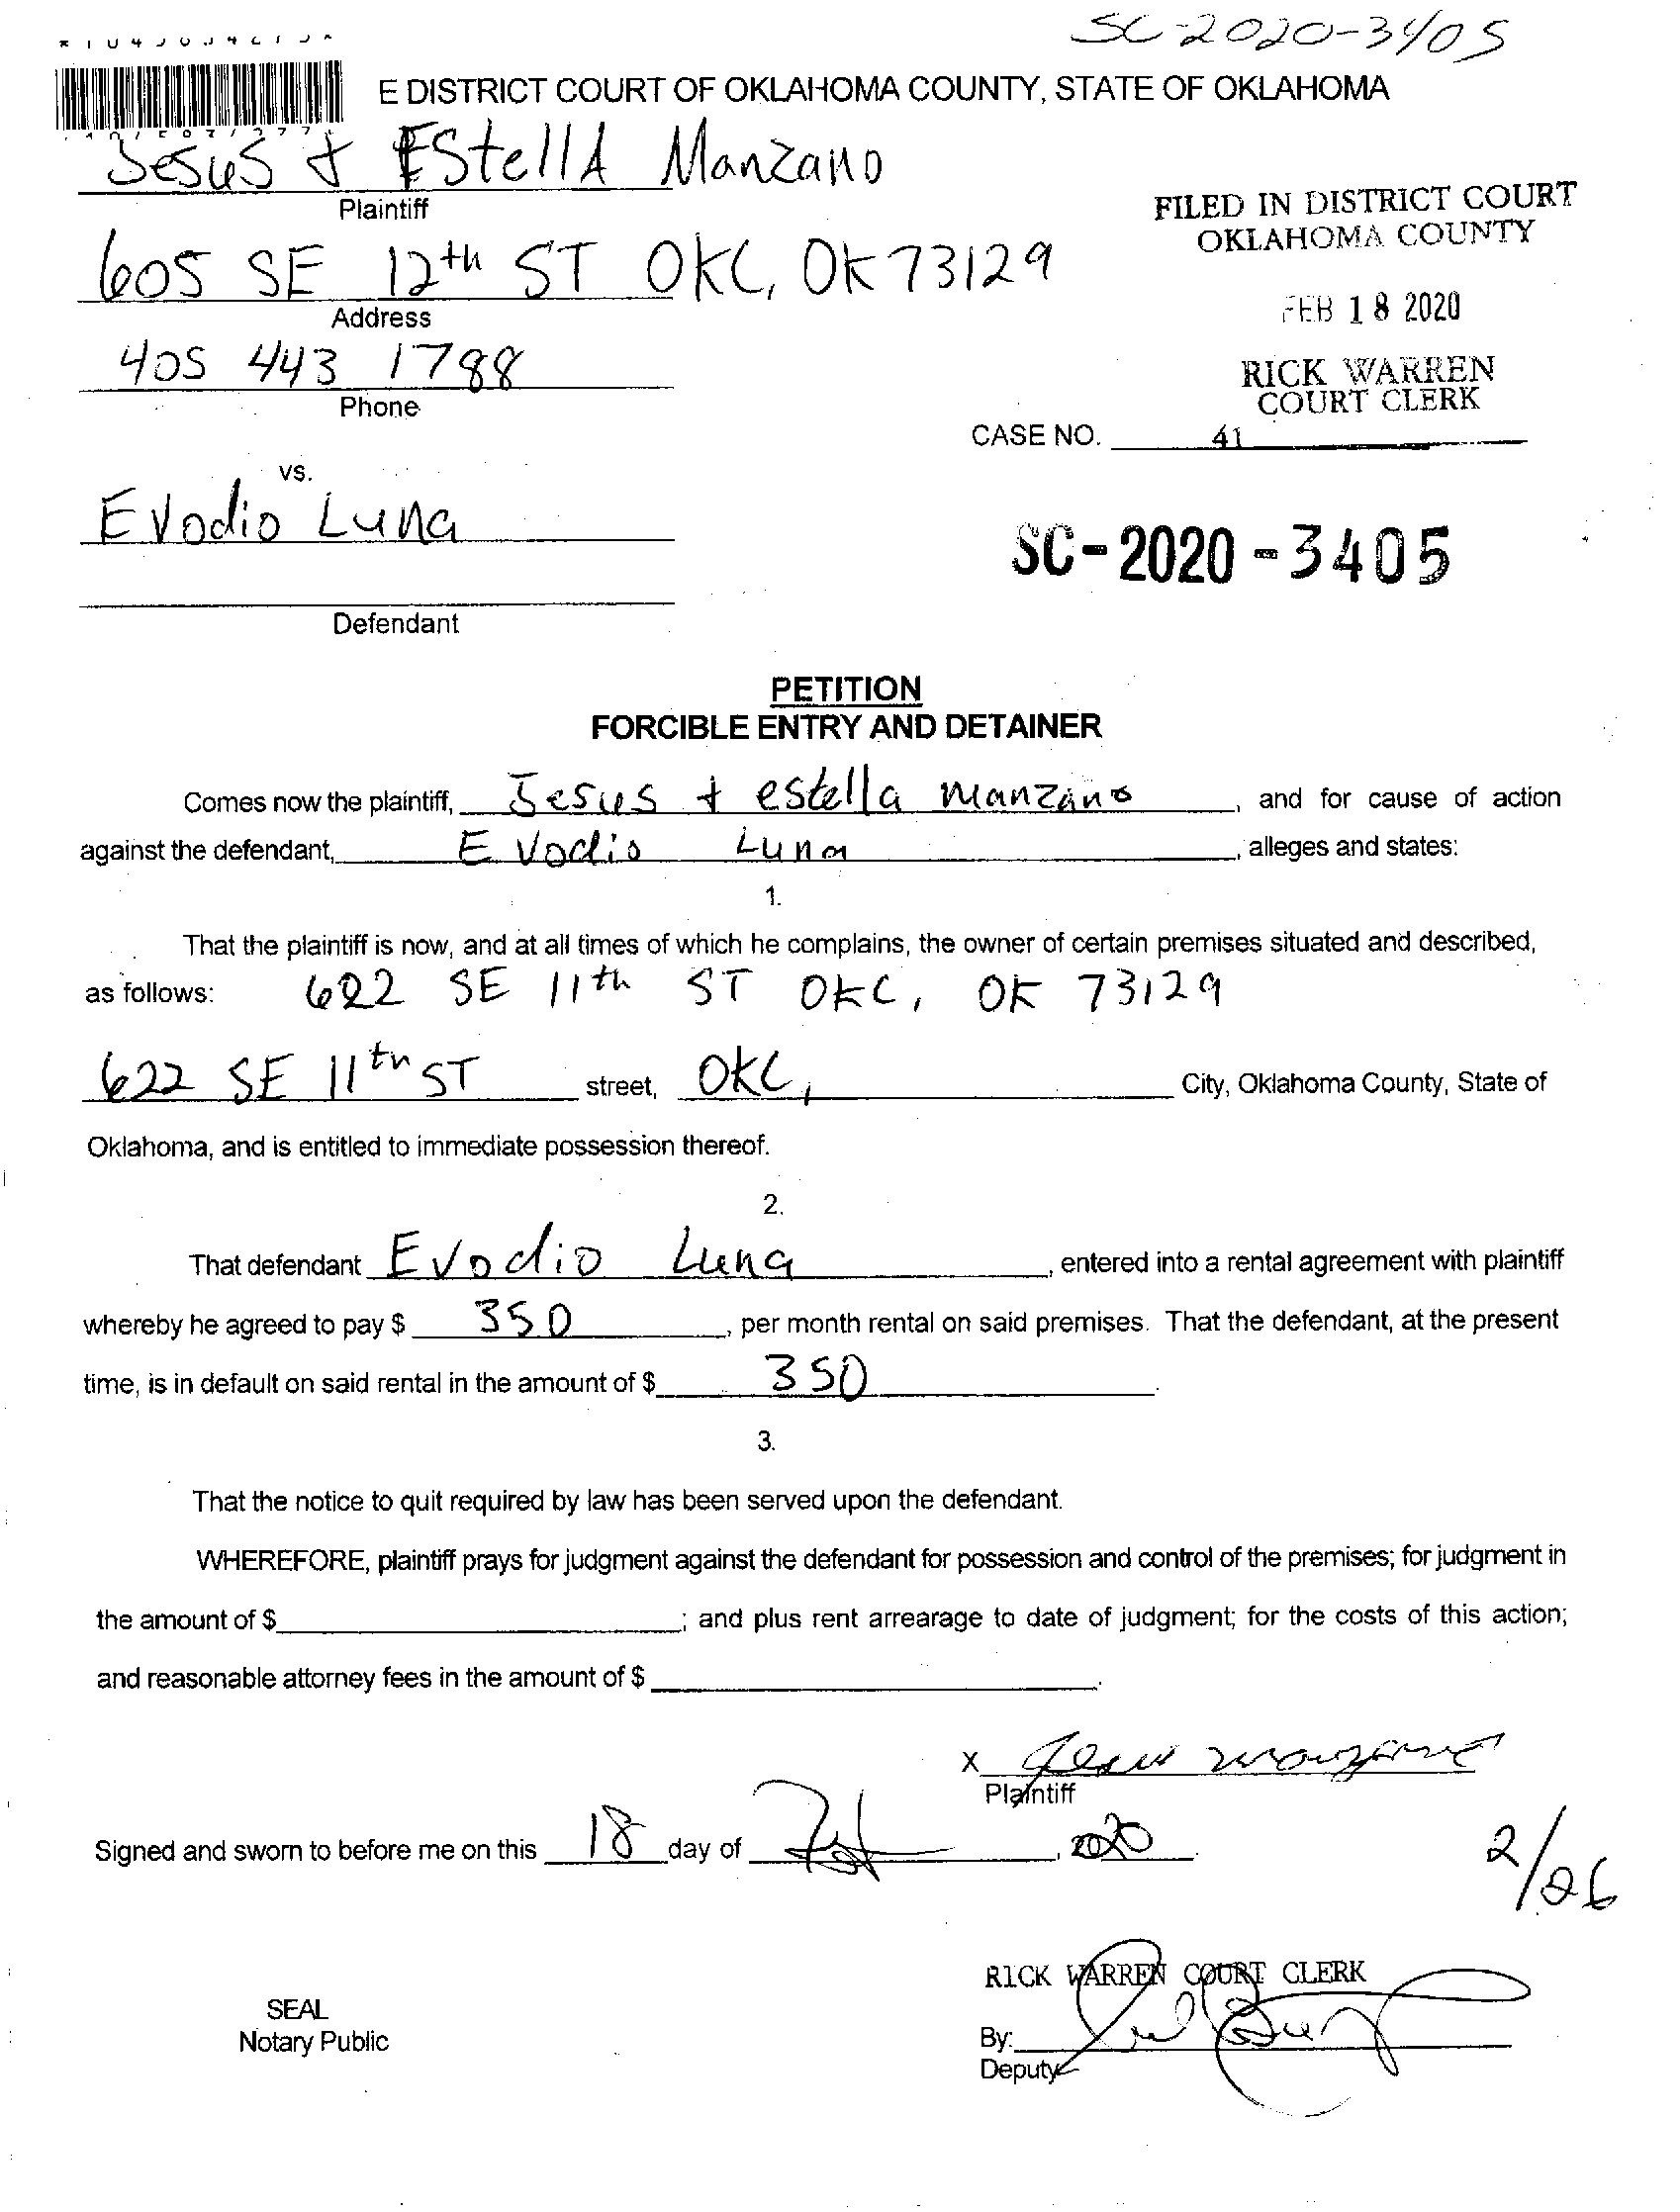 SC-2020-3405
E DISTRICT COURT OF OKLAHOMA COUNTY, STATE OF OKLAHOMA
Jesus & EStellA Manzano
Plaintiff
FILED IN DISTRICT COURT
OKLAHOMA COUNTY
605 SE 12th ST OKC, OK 73129
Address
FEB 18 2020
405 443 1788
Phone
RICK WARREN
COURT CLERK
CASE NO. 41
vs.
Evodio Luna
SC-2020-3405
Defendant
PETITION
FORCIBLE ENTRY AND DETAINER
Comes now the plaintiff, Jesus + estella manzano, and for cause of action
against the defendant, Evodio Luna, alleges and states:
1.
That the plaintiff is now, and at all times of which he complains, the owner of certain premises situated and described,
as follows: 622 SE 11th ST OKC, OK 73129
622 SE 11th ST street, OKC, City, Oklahoma County, State of
Oklahoma, and is entitled to immediate possession thereof.
2.
That defendant Evodio Luna, entered into a rental agreement with plaintiff
whereby he agreed to pay $ 350, per month rental on said premises. That the defendant, at the present
time, is in default on said rental in the amount of $ 350.
3.
That the notice to quit required by law has been served upon the defendant.
WHEREFORE, plaintiff prays for judgment against the defendant for possession and control of the premises; for judgment in
the amount of $ ; and plus rent arrearage to date of judgment; for the costs of this action;
and reasonable attorney fees in the amount of $ .
X Jesus manzano
Plaintiff
Signed and sworn to before me on this 18 day of Feb, 2020.
2/26
RICK WARREN COURT CLERK
SEAL
Notary Public
By:
Deputy